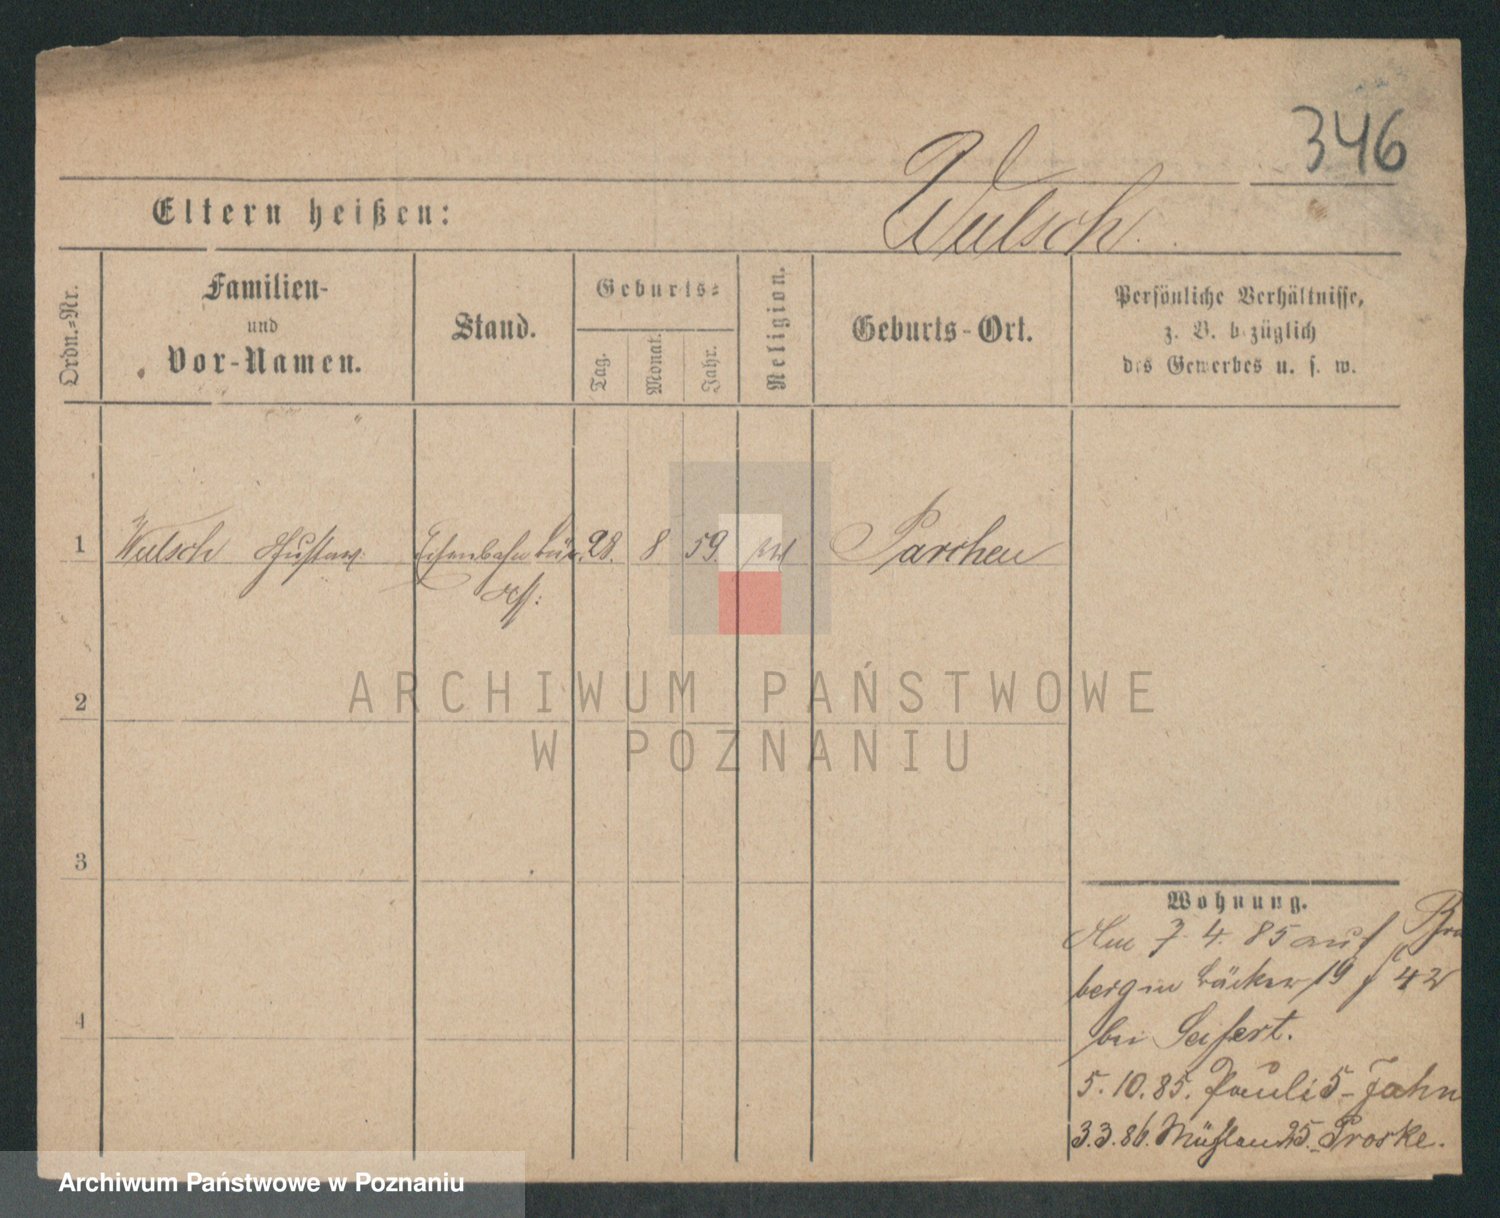 346
Eltern heißen:
Wutsch.
Ordn.=Nr.
Familien-
und
Vor-Namen.
Stand.
Geburts=
Tag.
Monat.
Jahr.
Religion.
Geburts-Ort.
Persönliche Verhältnisse,
z. B. bezüglich
des Gewerbes u. s. w.
1 Wutsch Gustav Eisenbahn bür. 28. 8 59. Parchen
2
3
4
Wohnung.
Am 7. 4. 85 auf
bei Seifert.
5. 10. 85. Pauli 5 - Jahn
3. 3. 86. 25. Proske.
ARCHIWUM PAŃSTWOWE
W POZNANIU
Archiwum Państwowe w Poznaniu